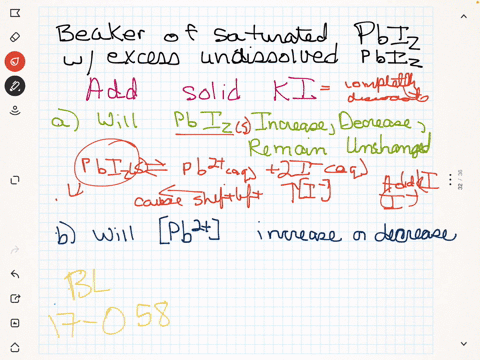 Beaker of saturated PbI2
w/ excess undissolved PbI2
Add solid KI = completely
dissociates
a) Will PbI2(s) Increase, Decrease,
Remain Unchanged
PbI2(s) ⇌ Pb2+(aq) + 2I-(aq)
cause shift left ↑[I-]
I-
b) Will [Pb2+] increase or decrease
BL
17-0 58
32 / 36